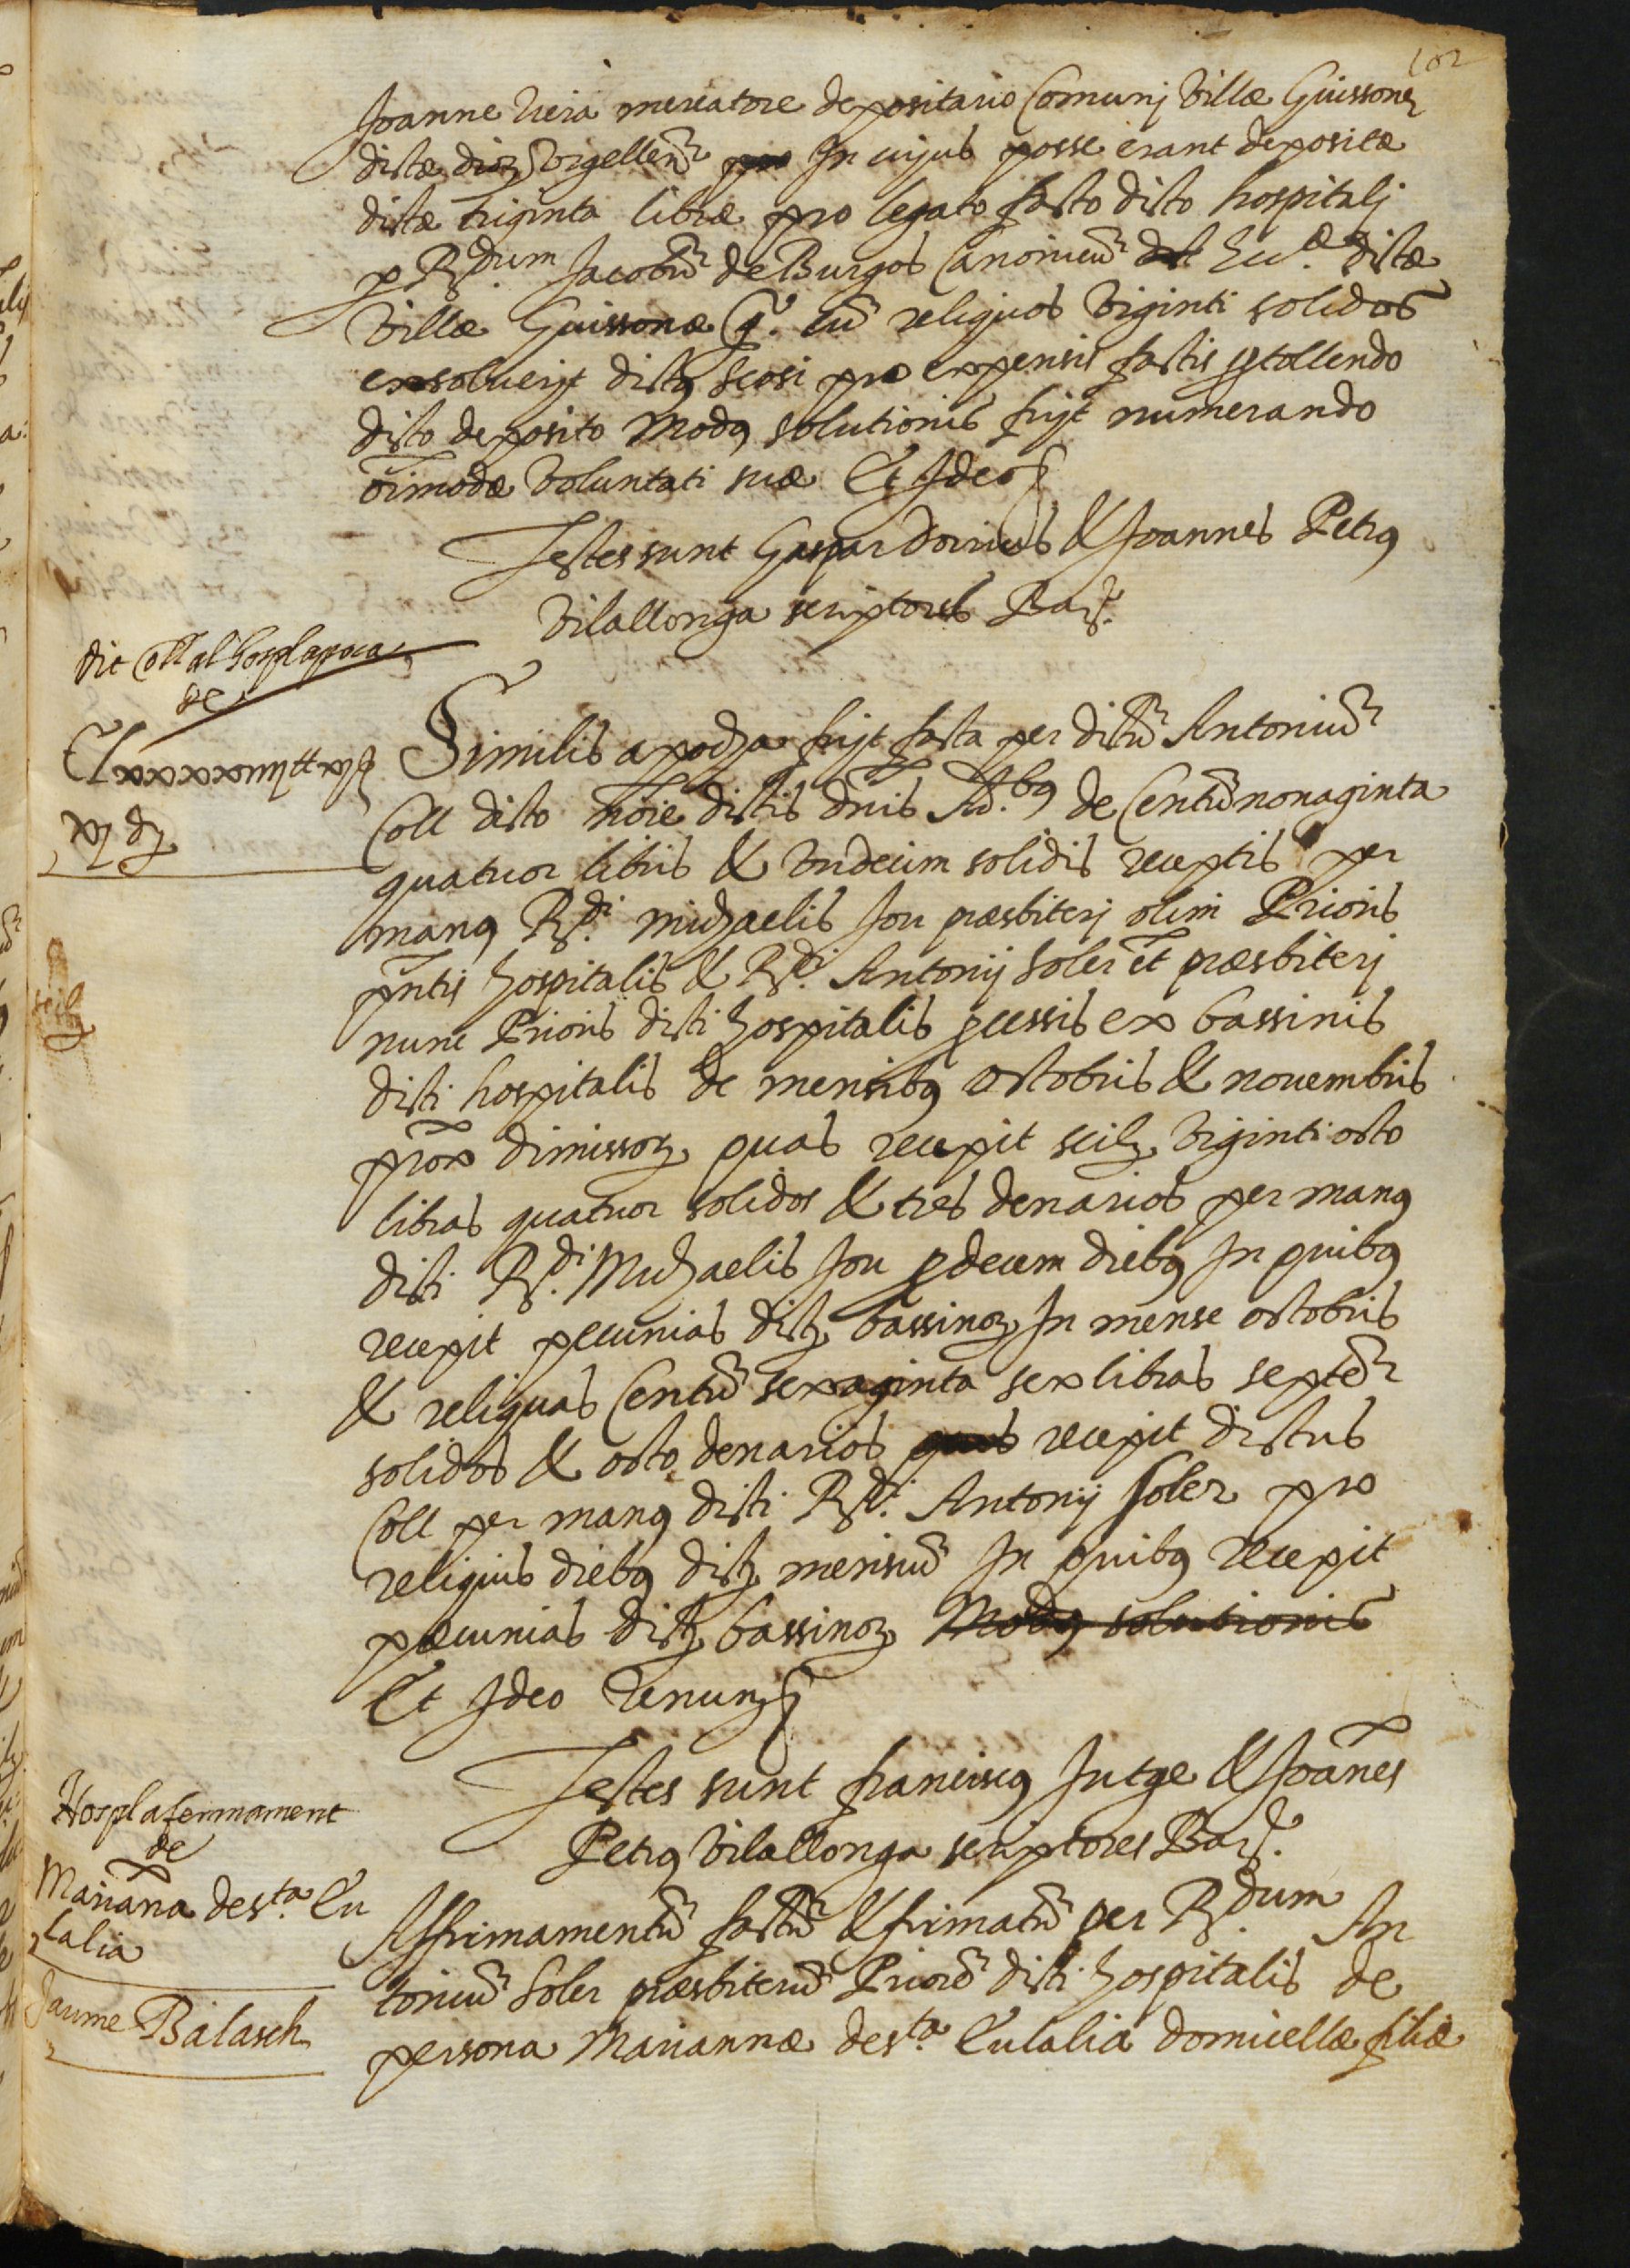 102
Joanne Riera mercatore depositario Comunj Villæ Guissonę
dictæ dioz Vrgellen̄ in cujus posse erant depositæ
dictæ triginta libræ pro legato facto dicto hospitalj
p Rdum Jacobū de Burgos Canonicū Ecc.æ dictæ
Villæ Guissonæ q̄. cū reliquos viginti solidos
exsoluerjt dictus Scosi pro expensis factis p tollendo
dicto deposito Modus solutionis fujt numerando
oīmodæ voluntati suæ Et Ideo
Testes sunt Gaspar & Joannes Petrus
Vilallonga scriptores Bar.
dit Coll al hospl apoca
de
Clxxxxiiij ll xj s
xj ds
Similis apocha fujt facta per dictū Antoniū
Coll dicto noīe dictis dnīs Ad.bus de Centū nonaginta
quatuor libris & Vndecim solidis receptis per
manus Rdi. Michaelis Jou præsbiterj olim Prioris
pn̄tis hospitalis & Rdi. Antonij Soler et præsbiterj
nunc Prioris dicti hospitalis pcessis ex bassinis
dicti hospitalis de mensibus octobris & novembris
prox dimissor, quas recepit scilz, viginti octo
libras quatuor solidos & tres denarios per manus
dicti Rdi. Michaelis Jou p decem diebus In quibus
recepit pecunias dict, bassinor, In mense octobris
& reliquas Centū sexaginta sex libras septē
solidos & octo denarios quas recepit dictus
Coll per manus dicti Rdi. Antonij Soler pro
reliquis diebus dict, mensiū In quibus recepit
pæcunias dict, bassinor, Modus solutionis
Et Ideo Renun
Testes sunt franciscus Jutge & Joānes
Petrus Vilallonga scriptores Bar.
Hospl afermament
de
Mariana de sta. Eu
lalia
Jaume Balasch
Affirmamentū factū & firmatū per Rdum. An
toniū Soler præsbiterū Priorē dicti hospitalis de
persona Mariannæ de sta. Eulalia domicellæ filiæ